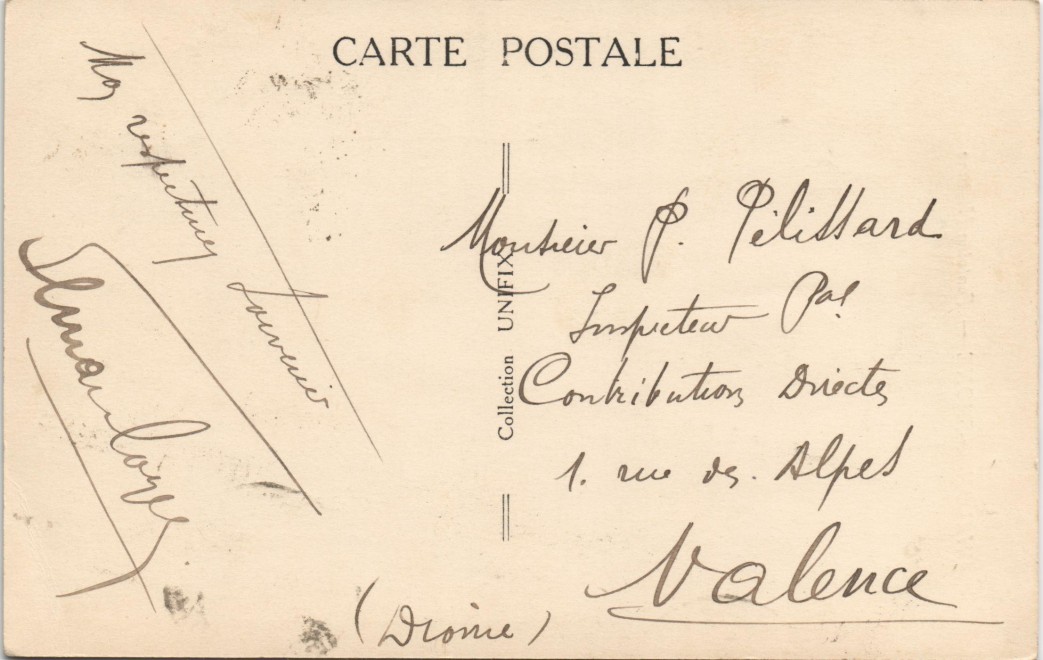 CARTE POSTALE
Mes respectueux
souvenir
Monsieur P. Pélissard
Inspecteur Pal
Contributions Directes
1. rue des. Alpes
Valence
(Drome)
Collection UNIFIX